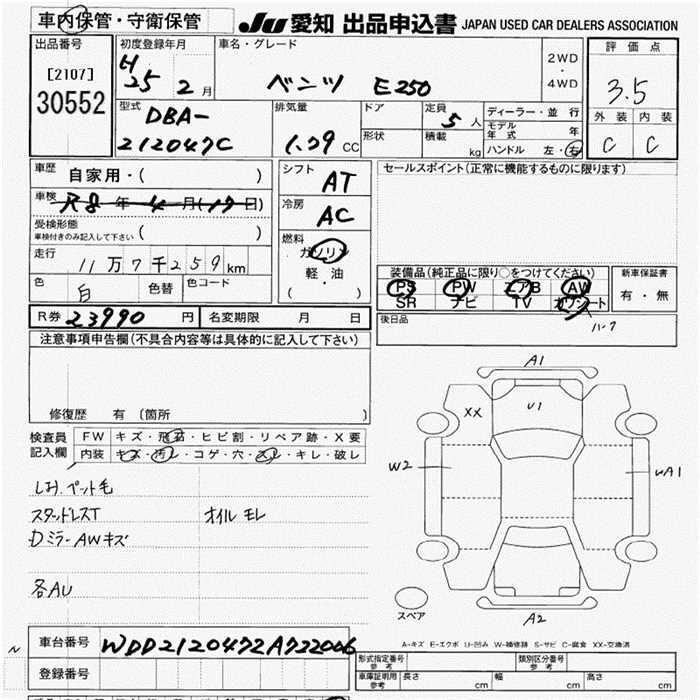 車内保管・守衛保管
JU 愛知 出品申込書 JAPAN USED CAR DEALERS ASSOCIATION
出品番号
[2107]
30552
初度登録年月
H
25 2 月
車名・グレード
ベンツ E250
2WD
・
4WD
評価点
3.5
外装 内装
C C
型式
DBA-
212047C
排気量
1.79 CC
ドア
形状
定員
5 人
積載
kg
ディーラー・並行
モデル年式 年
ハンドル 左・右
車歴
自家用・( )
車検
R8 年 4 月(17日)
受検形態
車検付きのみ記入して下さい ( )
走行
11万7千259km
色
白
色替
色コード
シフト
AT
冷房
AC
燃料
ガソリン
軽・油
( )
セールスポイント(正常に機能するものに限ります)
装備品(純正品に限り○をつけてください)
PS PW エアB AW
SR ナビ TV カワシート
新車保証書
有・無
後日品
ハーフ
R券 23990 円
名変期限 月 日
注意事項申告欄(不具合内容等は具体的に記入して下さい)
修復歴 有 〔箇所
検査員
記入欄
FW キズ・飛石・ヒビ割・リペア跡・X要
内装 キズ・汚レ・コゲ・穴・スレ・キレ・破レ
シミ、ペット毛
スタッドレスT オイルモレ
Dミラー AWキズ
各AU
A1
XX
U1
W2
UA1
A2
スペア
A-キズ E-エクボ U-凹み W-補修跡 S-サビ C-腐食 XX-交換済
N
車台番号
WDD2120472A722006
登録番号
形式指定番号
参考
類別区分番号
参考
車庫証明用
参考
長さ cm
幅 cm
高さ cm